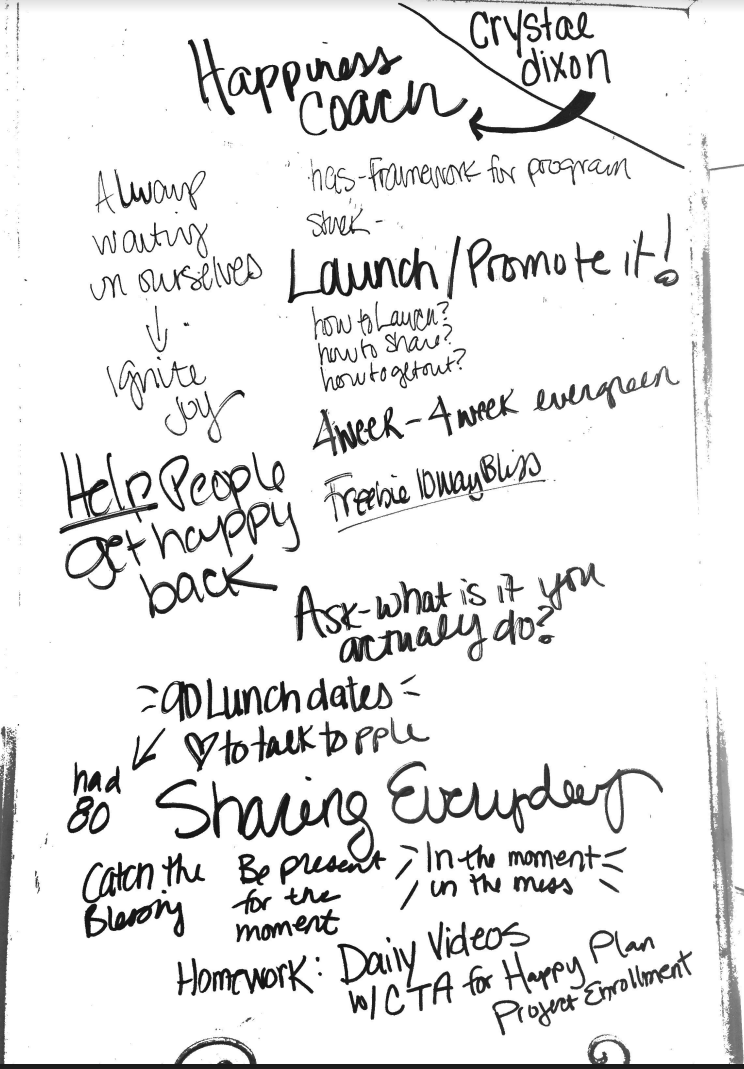 Crystal
dixon
Happiness
Coach
Always
waiting
on ourselves
Ignite
Joy
has - Framework for program
stuck -
Launch / Promote it!
how to Launch?
how to share?
how to get out?
4 week - 4 week evergreen
Freebie 10 way Bliss
Help People
get happy
back
Ask - what is it you
actualy do?
90 Lunch dates
♡ to talk to pple
had
80
Sharing Everyday
Catch the
Blessing
Be present
for the
moment
In the moment
in the mess
Homework: Daily Videos
w/ CTA for Happy Plan
Project Enrollment